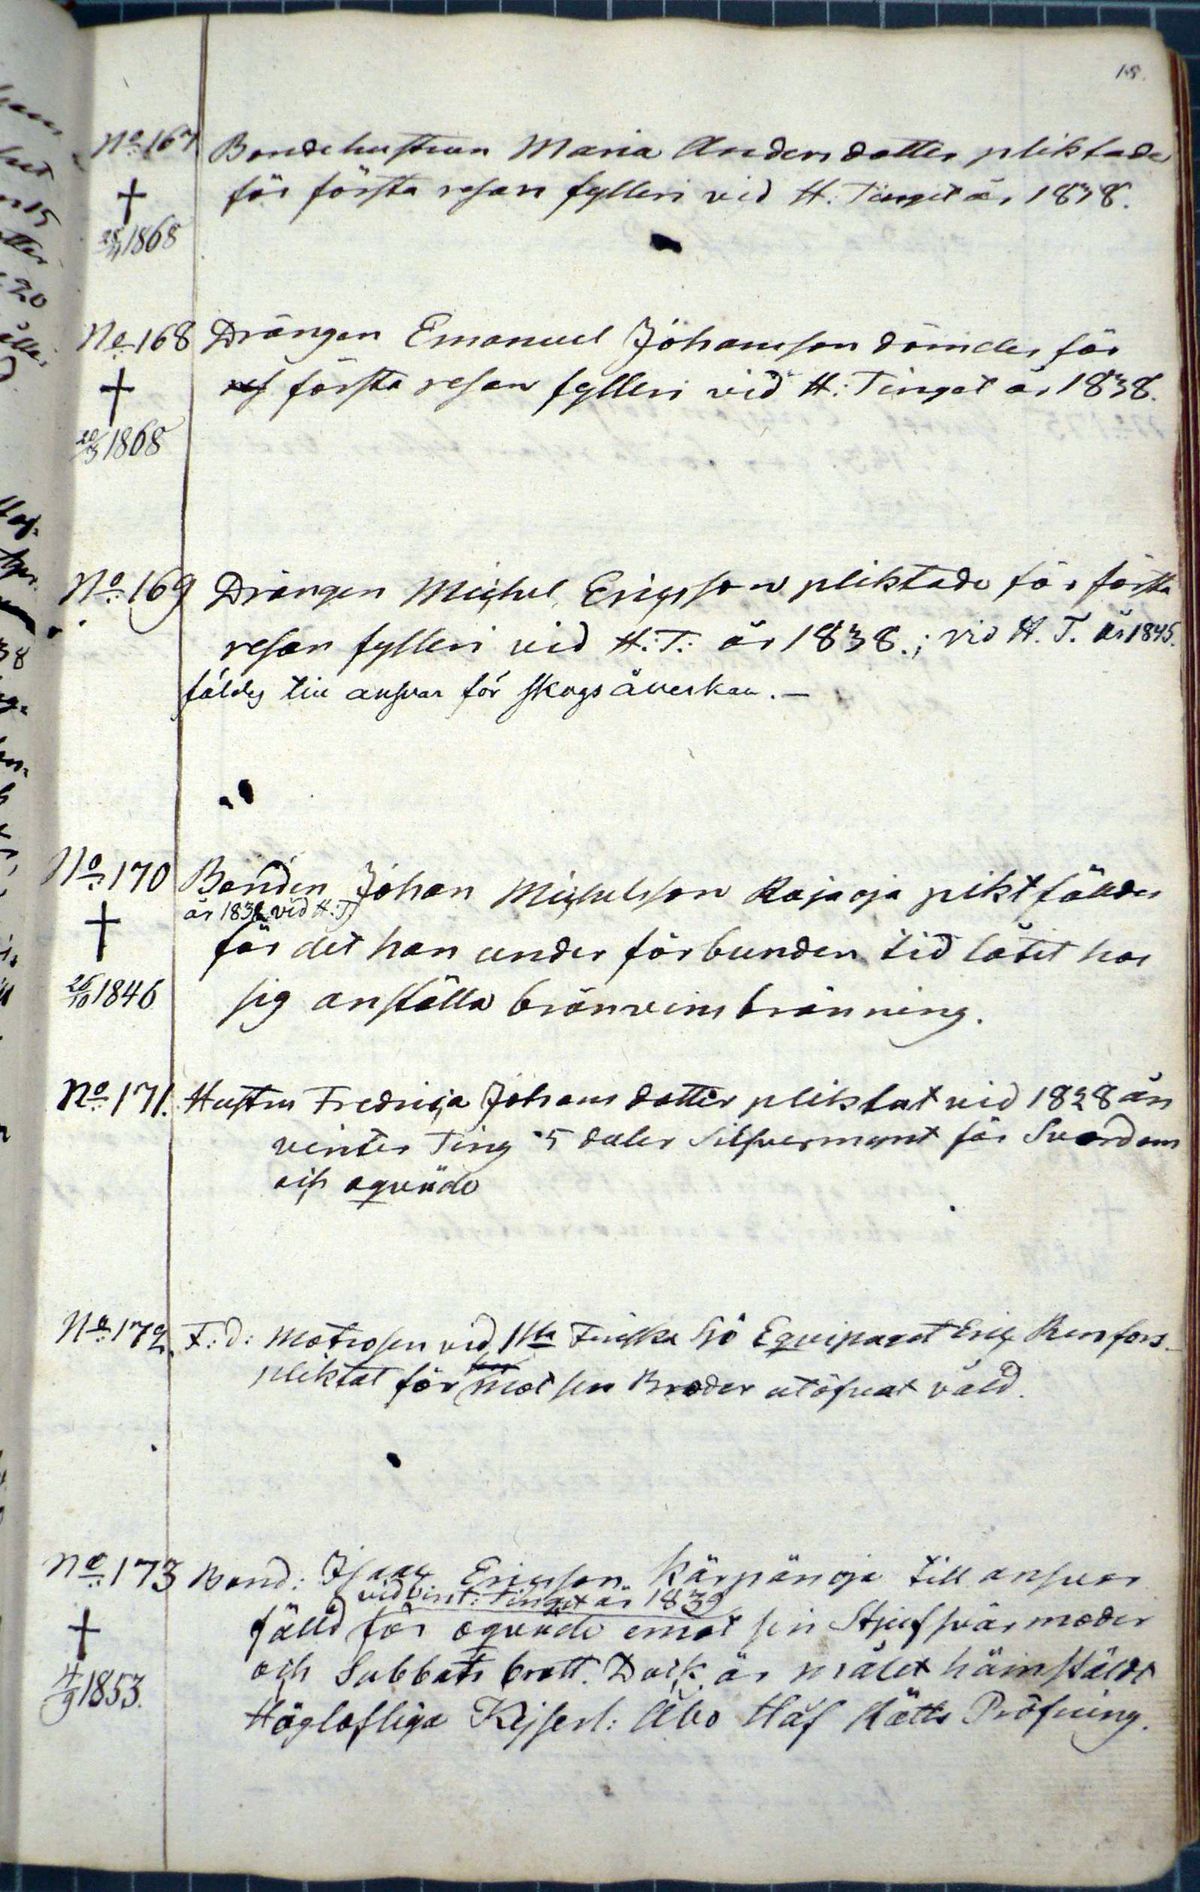 18.
No 167 Bondehustrun Maria Andersdotter pliktade
för första resan fylleri vid H. Tinget år 1838.
† 28/4 1868
No 168 Drängen Emanuel Johansson dömdes för
första resan fylleri vid H: Tinget år 1838.
† 1868
No 169 Drängen Michel Ericsson pliktade för första
resan fylleri vid H: T: år 1838.; vid H. T. år 1845.
fäldes till ansvar för skogsåverkan. —
No 170 Bonden Johan Michelsson Rajaoja piktfäldes
år 1838 vid H: T:
för det han under förbunden tid låtit hos
† 26/10 1846
sig anställa bränvins bränning.
No 171. Hustru Fredrica Johans dotter pliktat vid 1828 års
vinter Ting 5 daler Silfvermynt för Svordom
och oqväde
No 172. F: d: Matrosen vid 1sta Finska Sjö Equipaget Eric Renfors
pliktat för mot sin Broder utöfvat våld.
No 173 Bond: Isaac Ericsson Kärpänoja till ansvar
vid vint: Tinget år 1839
fälld för oqväde emot sin Stjufsvärmoder
och Sabbats brott. Dock är målet hämskäldt
† 4/9 1853.
Höglofliga Kejserl: Åbo Håf Rätts Pröfning.